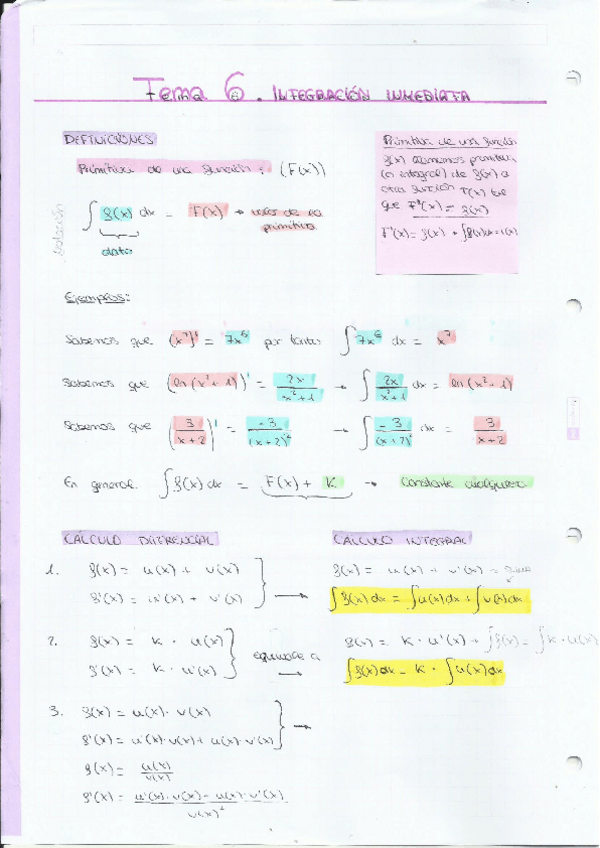 Tema 6. INTEGRACIÓN INMEDIATA
DEFINICIONES
Primitiva de una función: (F(x))
∫ f(x) dx = F(x) → valor de la primitiva
dato
notación
Primitiva de una función
f(x) llamamos primitiva
(o integral) de f(x) a
otra función F(x) tal
que F'(x) = f(x)
F'(x) = f(x) → ∫f(x)dx = F(x)
Ejemplos:
Sabemos que (x⁷)' = 7x⁶ por tanto ∫ 7x⁶ dx = x⁷
Sabemos que (ln(x²+1))' = 2x/(x²+1) → ∫ 2x/(x²+1) dx = ln(x²+1)
Sabemos que (3/(x+2))' = -3/(x+2)² → ∫ -3/(x+2)² dx = 3/(x+2)
En general. ∫ f(x) dx = F(x) + K → constante cualquiera
CÁLCULO DIFERENCIAL
1. f(x) = u(x) + v(x)
f'(x) = u'(x) + v'(x)
2. f(x) = K · u(x)
f'(x) = K · u'(x)
equivale a →
3. f(x) = u(x) · v(x)
f'(x) = u'(x)·v(x) + u(x)·v'(x)
f(x) = u(x)/v(x)
f'(x) = u'(x)·v(x) - u(x)·v'(x)/v(x)²
CÁLCULO INTEGRAL
f(x) = u(x) + v'(x) =
∫f(x)dx = ∫u(x)dx + ∫v(x)dx
f(x) = K · u'(x) → ∫f(x) = ∫K · u(x)
∫f(x)dx = K · ∫u(x)dx